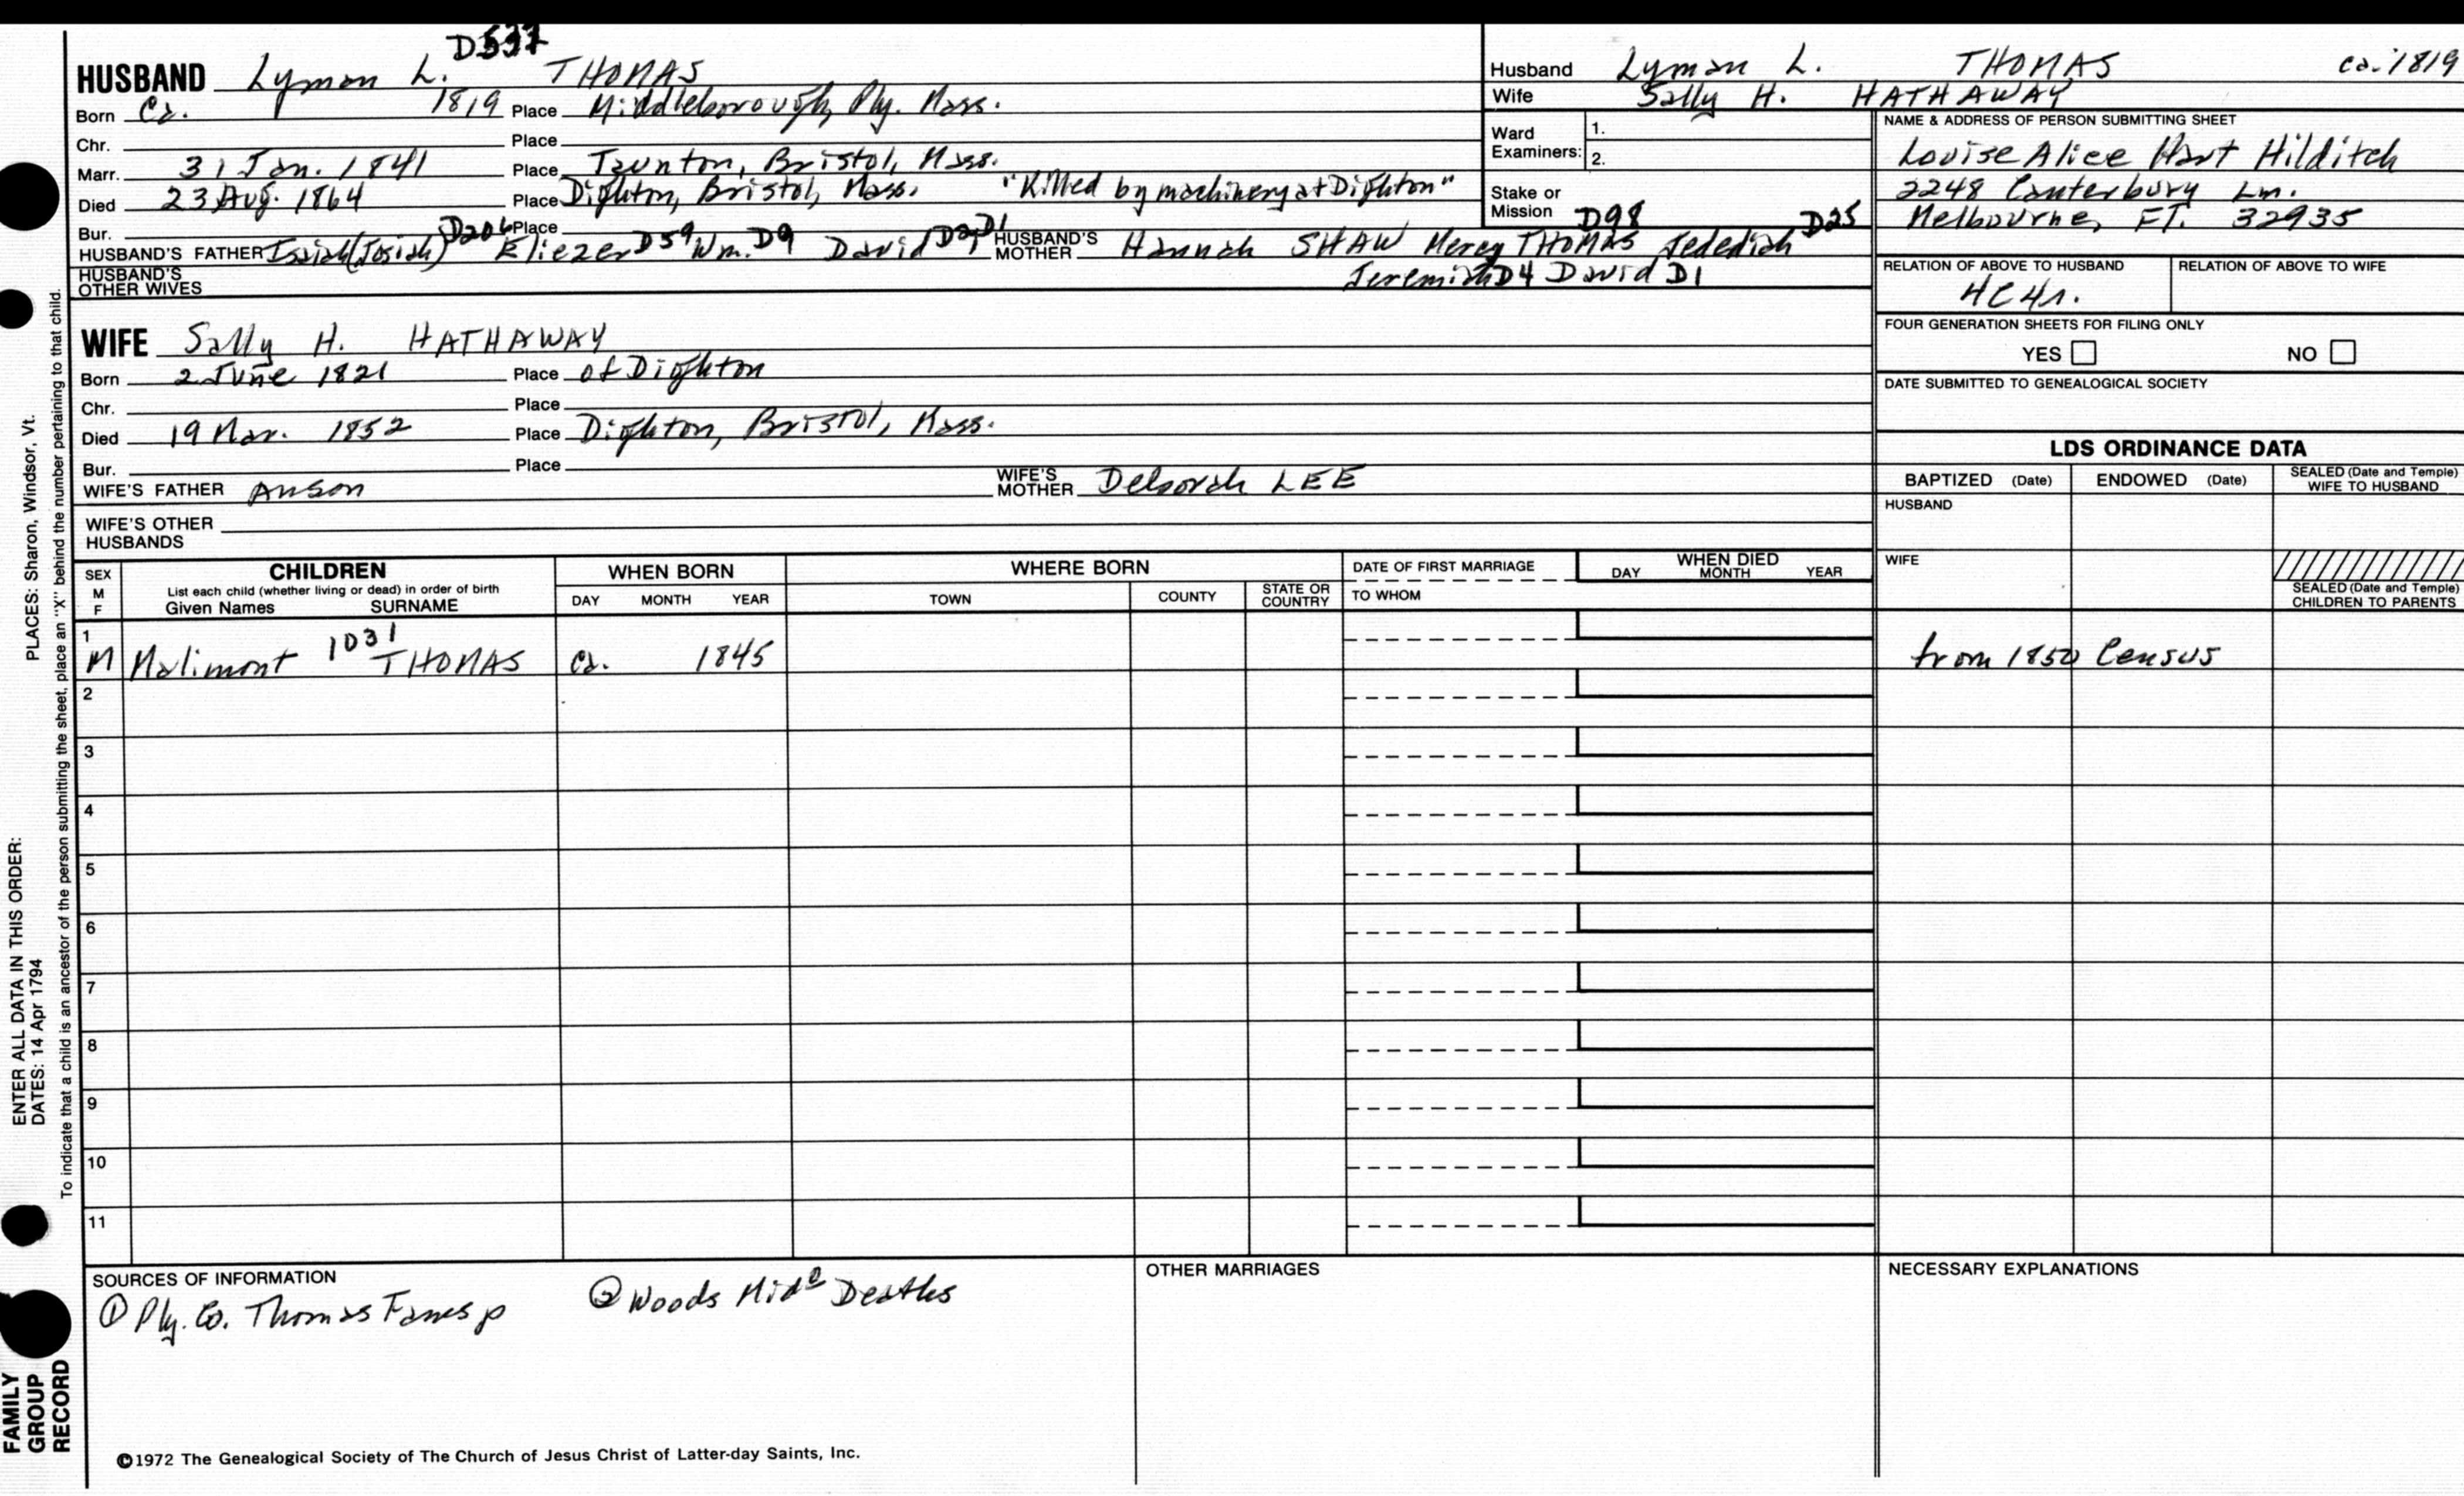 D537
HUSBAND Lyman L. THOMAS
Born Ca. 1819 Place Middleborough, Ply. Mass.
Chr. Place
Marr. 31 Jan. 1841 Place Taunton, Bristol, Mass.
Died 23 Aug. 1864 Place Dighton, Bristol, Mass. "Killed by machinery at Dighton"
Bur. Place
HUSBAND'S FATHER Isaiah (Josiah) D206 Eliezer D59 Wm. D9 David D2 D1 HUSBAND'S MOTHER Hannah SHAW Mercy THOMAS D98 Jedediah D25
Jeremiah D4 David D1
HUSBAND'S OTHER WIVES
WIFE Sally H. HATHAWAY
Born 2 June 1821 Place of Dighton
Chr. Place
Died 19 Mar. 1852 Place Dighton, Bristol, Mass.
Bur. Place
WIFE'S FATHER Anson WIFE'S MOTHER Deborah LEE
WIFE'S OTHER HUSBANDS
Husband Lyman L. THOMAS ca. 1819
Wife Sally H. HATHAWAY
Ward Examiners: 1.
2.
Stake or Mission
NAME & ADDRESS OF PERSON SUBMITTING SHEET
Louise Alice Hart Hilditch
2248 Canterbury Ln.
Melbourne, FL. 32935
RELATION OF ABOVE TO HUSBAND RELATION OF ABOVE TO WIFE
4C4r.
FOUR GENERATION SHEETS FOR FILING ONLY
YES NO
DATE SUBMITTED TO GENEALOGICAL SOCIETY
LDS ORDINANCE DATA
BAPTIZED (Date) ENDOWED (Date) SEALED (Date and Temple) WIFE TO HUSBAND
HUSBAND
WIFE
SEALED (Date and Temple) CHILDREN TO PARENTS
SEX M F CHILDREN WHEN BORN WHERE BORN DATE OF FIRST MARRIAGE WHEN DIED
List each child (whether living or dead) in order of birth
Given Names SURNAME DAY MONTH YEAR TOWN COUNTY STATE OR COUNTRY TO WHOM DAY MONTH YEAR
1 M Malimont 1031 THOMAS ca. 1845 from 1850 Census
2
3
4
5
6
7
8
9
10
11
SOURCES OF INFORMATION
① Ply. Co. Thomas Fams p ② Woods Mid° Deaths
OTHER MARRIAGES
NECESSARY EXPLANATIONS
©1972 The Genealogical Society of The Church of Jesus Christ of Latter-day Saints, Inc.
ENTER ALL DATA IN THIS ORDER:
DATES: 14 Apr 1794
PLACES: Sharon, Windsor, Vt.
To indicate that a child is an ancestor of the person submitting the sheet, place an "X" behind the number pertaining to that child.
FAMILY
GROUP
RECORD